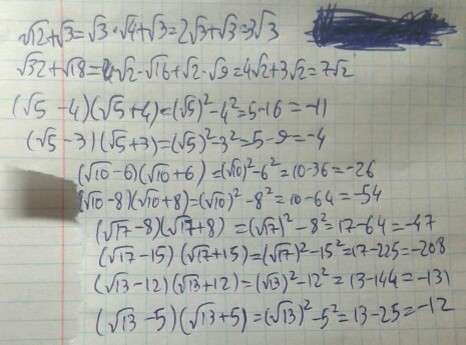 √12+√3=√3·√4+√3=2√3+√3=3√3
√32+√18=√2·√16+√2·√9=4√2+3√2=7√2
(√5-4)(√5+4)=(√5)²-4²=5-16=-11
(√5-3)(√5+3)=(√5)²-3²=5-9=-4
(√10-6)(√10+6)=(√10)²-6²=10-36=-26
(√10-8)(√10+8)=(√10)²-8²=10-64=-54
(√17-8)(√17+8)=(√17)²-8²=17-64=-47
(√17-15)(√17+15)=(√17)²-15²=17-225=-208
(√13-12)(√13+12)=(√13)²-12²=13-144=-131
(√13-5)(√13+5)=(√13)²-5²=13-25=-12